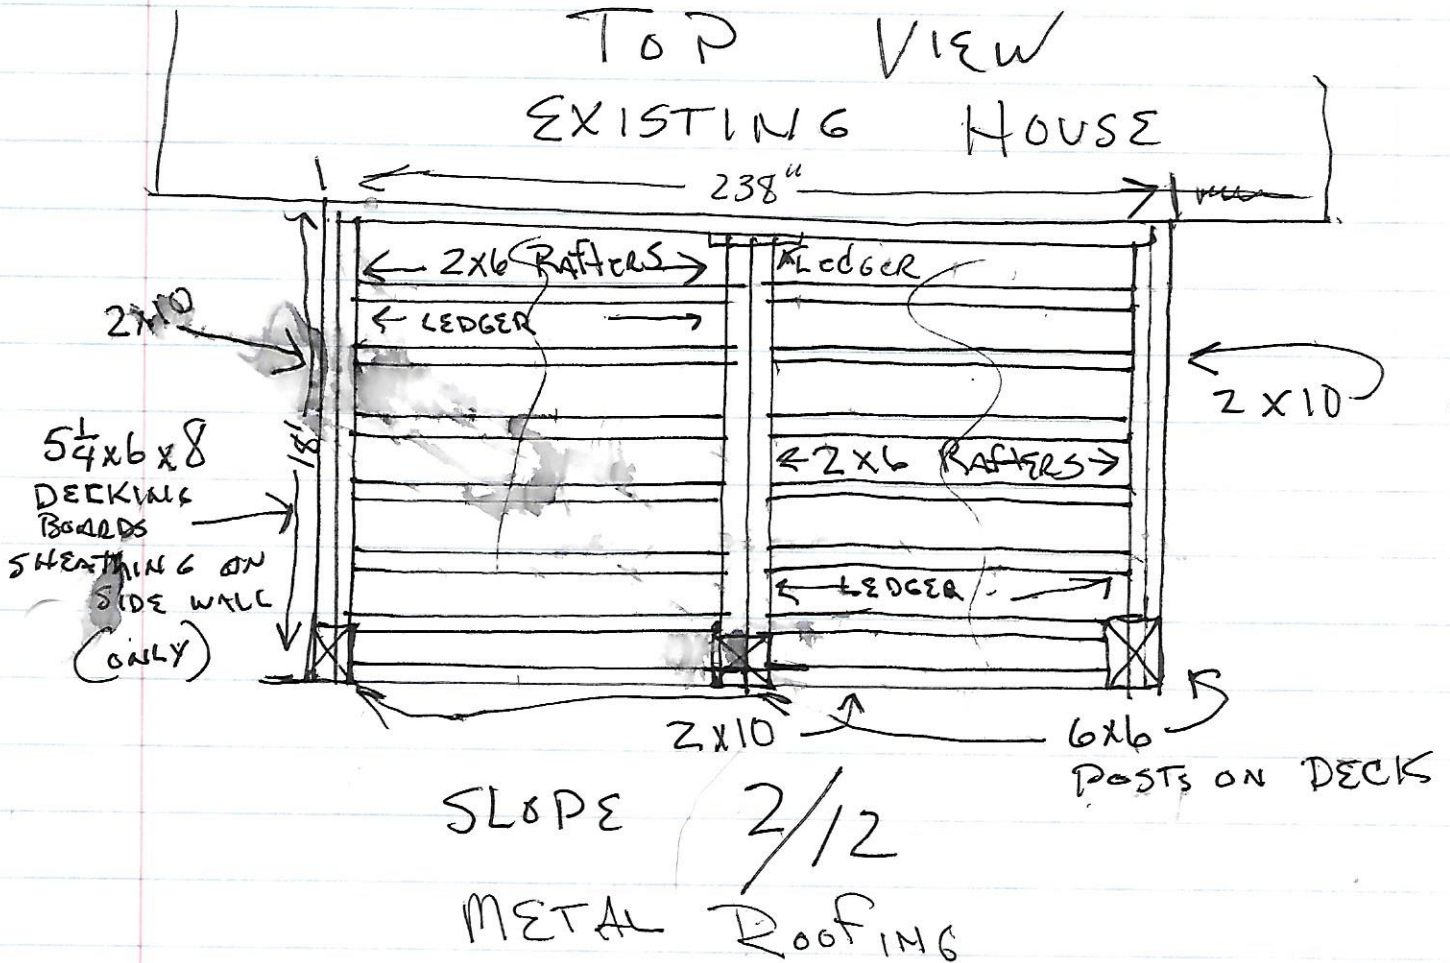 TOP VIEW
EXISTING HOUSE
238"
2x6 RAfteRS
LEDGER
LEDGER
2x10
2 x 10
18'
5 1/4 x 6 x 8
DECKING
BOARDS
SHEATHING ON
SIDE WALL
(ONLY)
2x6 RAfTERS
LEDGER
2x10
6x6
POSTS ON DECK
SLOPE 2/12
METAL RoofING